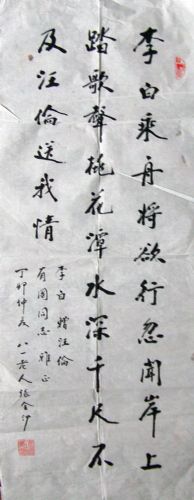 李白乘舟将欲行忽闻岸上
踏歌声桃花潭水深千尺不
及汪倫送我情
李白赠汪倫
有国同志雅正
丁卯仲夏八一老人张金沙